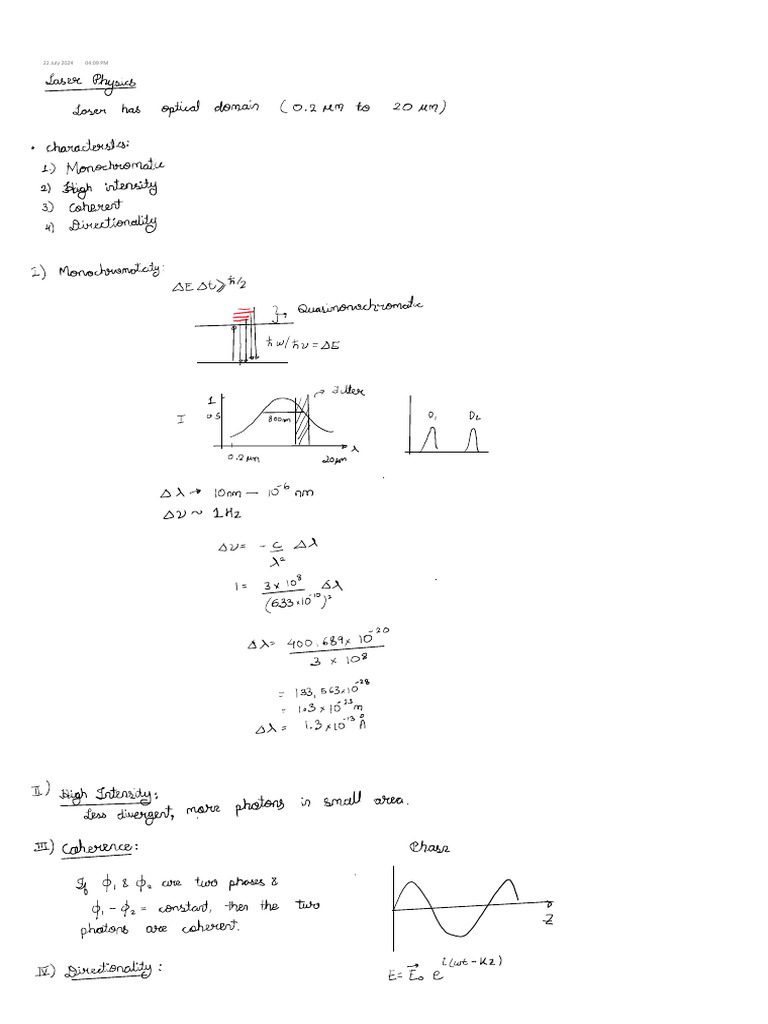 22 July 2024 04:09 PM
Laser Physics
Laser has optical domain ( 0.2 μm to 20 μm)
• Characterstics:
1.) Monochromatic
2) High intensity
3) Coherent
4) Directionality
I) Monochromaticity:
ΔE Δt ⩾ ħ/2
Quasimonochromatic
ħω/ħν = ΔE
Filter
1
0.5
I
800nm
λ
0.2 μm
20μm
D₁ D₂
Δλ → 10nm — 10⁻⁶ nm
Δν ~ 1Hz
Δν = - c/λ² Δλ
1 = 3 × 10⁸/(633×10⁻¹⁰)² Δλ
Δλ = 400.689 × 10⁻²⁰/3 × 10⁸
= 133,563×10⁻²⁸
= 1.3 × 10⁻²³ m
Δλ = 1.3 × 10⁻¹³ Å
II) High Intensity:
Less divergent, more photons in small area.
III) Coherence:
If ϕ₁ & ϕ₂ are two phases &
ϕ₁ - ϕ₂ = constant, then the two
photons are coherent.
Phase
Z
E = E⃗₀ e^i(ωt - Kz)
IV) Directionality: